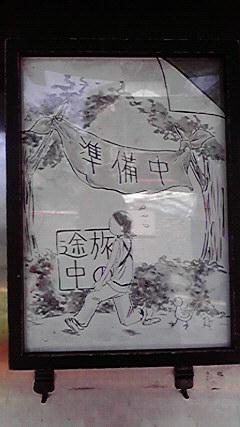 準備中
旅の
途中